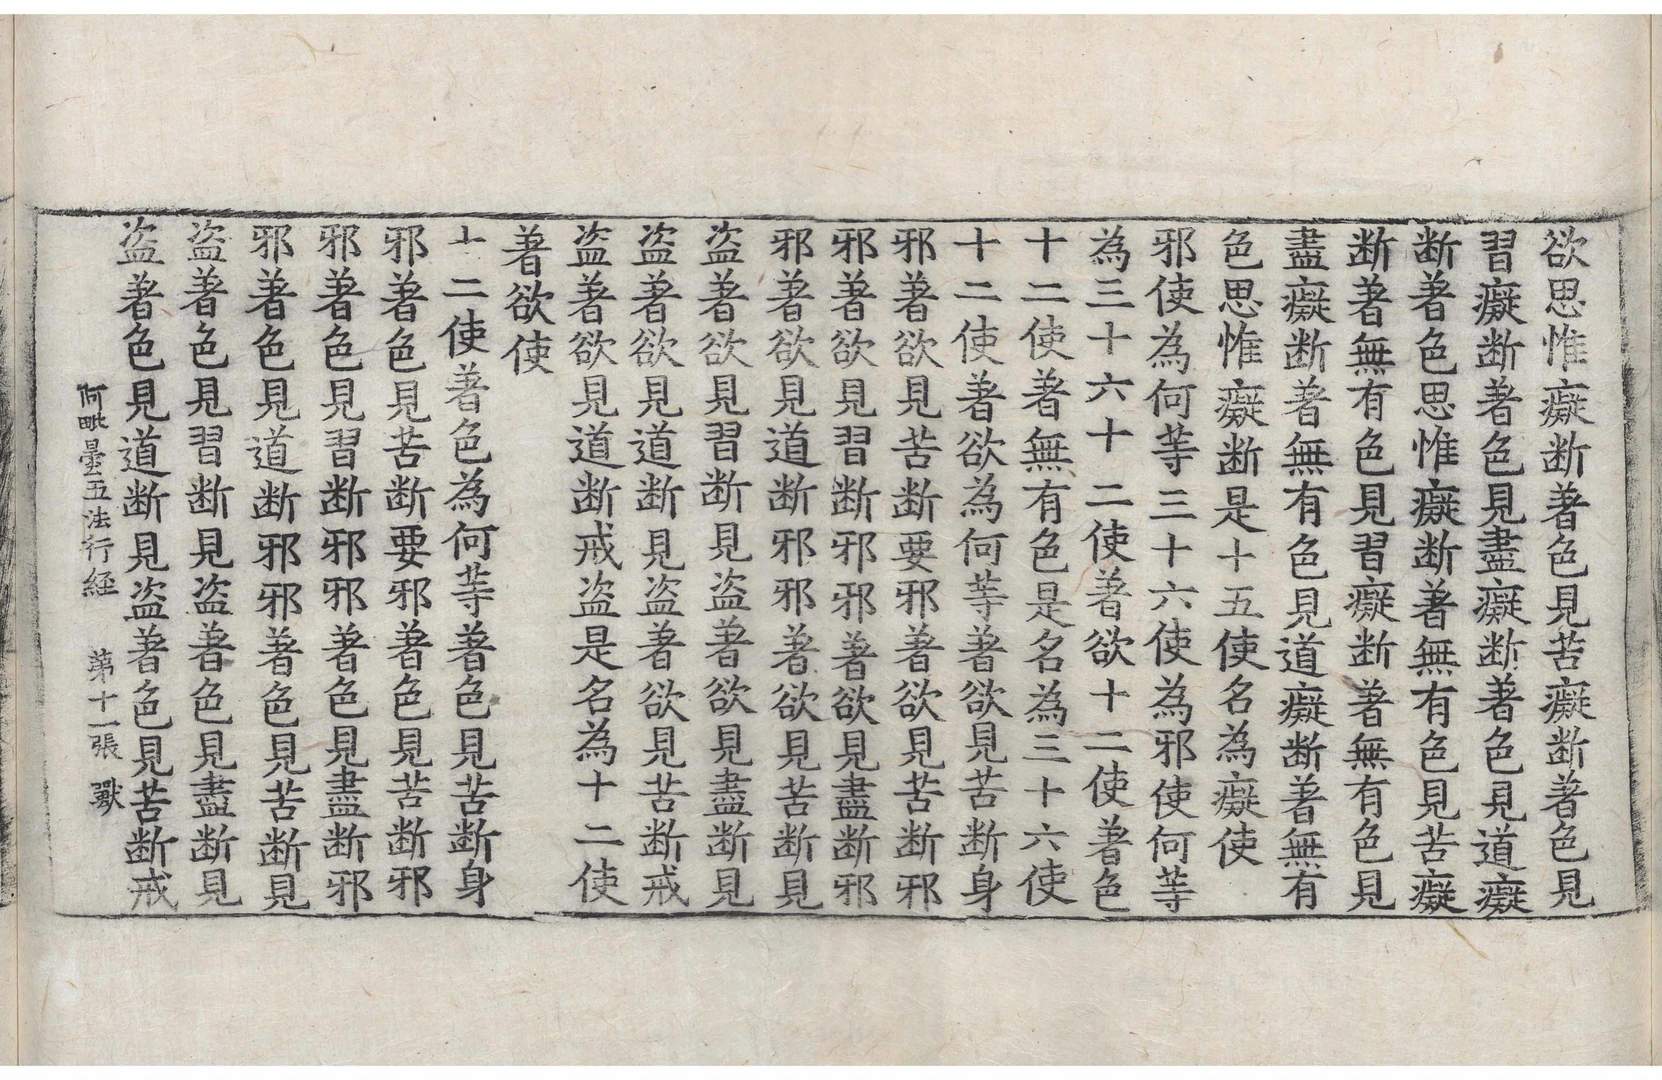 欲思惟癡断著色見苦癡断著色見
習癡断著色見盡癡断著色見道癡
断著色思惟癡断著無有色見苦癡
断著無有色見習癡断著無有色見
盡癡断著無有色見道癡断著無有
色思惟癡断是十五使名為癡使
邪使為何等三十六使為邪使何等
為三十六十二使著欲十二使著色
十二使著無有色是名為三十六使
十二使著欲為何等著欲見苦断身
邪著欲見苦断要邪著欲見苦断邪
邪著欲見習断邪邪著欲見盡断邪
邪著欲見道断邪邪著欲見苦断見
盗著欲見習断見盗著欲見盡断見
盗著欲見道断見盗著欲見苦断戒
盗著欲見道断戒盗是名為十二使
著欲使
十二使著色為何等著色見苦断身
邪著色見苦断要邪著色見苦断邪
邪著色見習断邪邪著色見盡断邪
邪著色見道断邪邪著色見苦断見
盗著色見習断見盗著色見盡断見
盗著色見道断見盗著色見苦断戒
阿毗曇五法行經 第十一張 獸